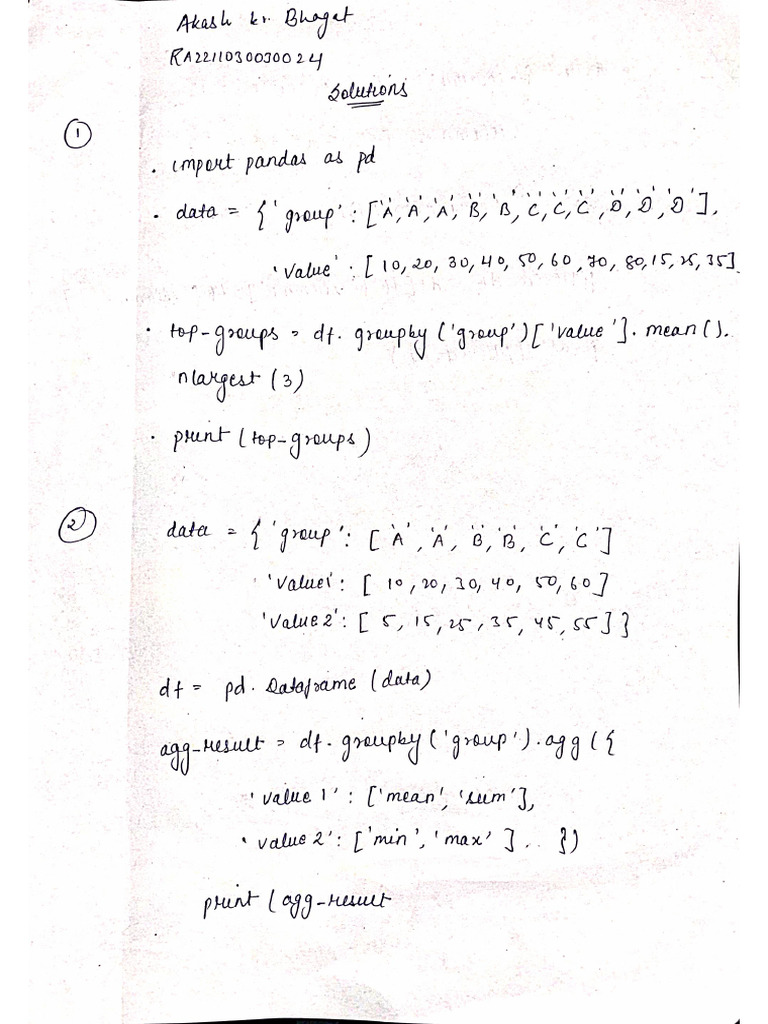 Akash kr. Bhagat
RA2211030030024
Solutions
1
. import pandas as pd
. data = { 'group' : ['A', 'A', 'A', 'B', 'B', 'C', 'C', 'C', 'D', 'D', 'D'],
'value' : [10, 20, 30, 40, 50, 60, 70, 80, 15, 25, 35]
. top-groups = df. groupby ('group') ['value']. mean ().
nlargest (3)
. print (top-groups)
2
data = { 'group' : ['A', 'A', 'B', 'B', 'C', 'C']
'value1' : [10, 20, 30, 40, 50, 60]
'value 2' : [5, 15, 25, 35, 45, 55] }
df = pd. Dataframe (data)
agg-result = df. groupby ('group'). agg ({
'value 1' : ['mean', 'sum'],
'value 2' : ['min', 'max'] . . })
print (agg-result